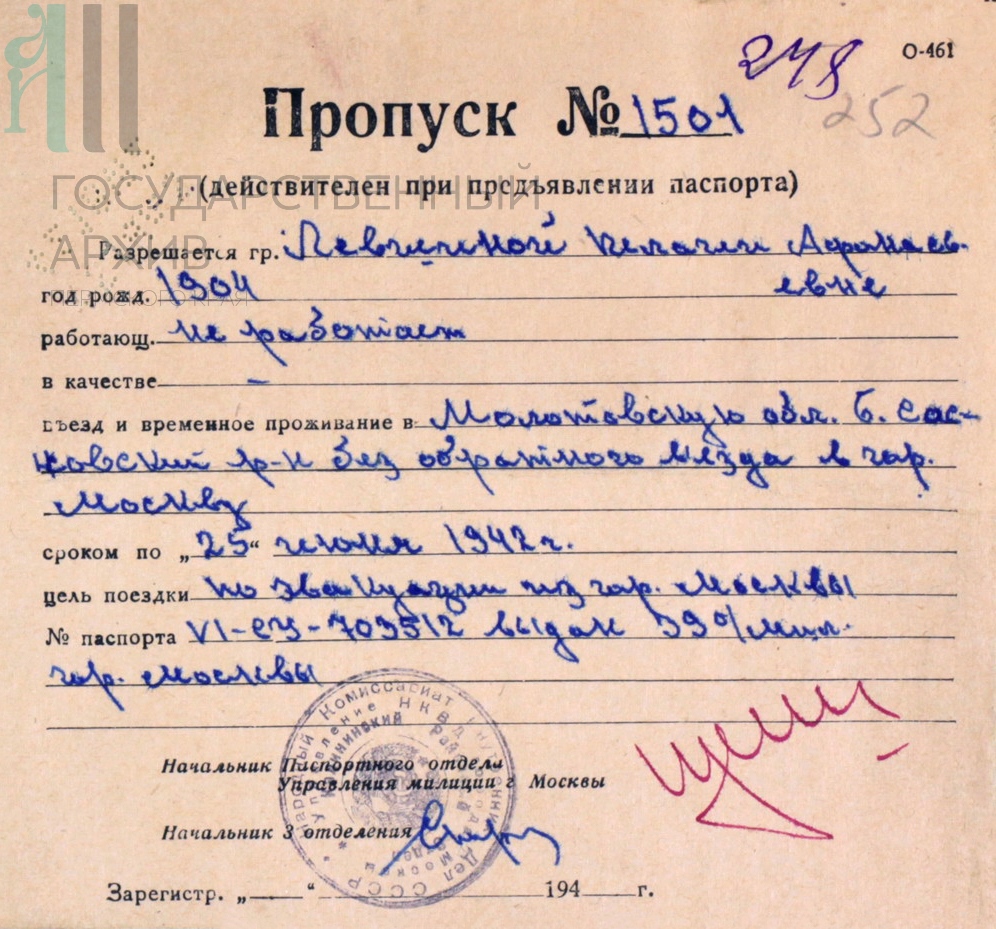 248
О-461
Пропуск № 1501
252
(действителен при предъявлении паспорта)
ГОСУДАРСТВЕННЫЙ
АРХИВ
ПЕРМСКОГО КРАЯ
Разрешается гр. Левчинской Пелагеи Афанасьев-
евне
год рожд. 1904
работающ. не работает
в качестве —
въезд и временное проживание в Молотовскую обл. Б. Сос-
новский р-н без обратного въезда в гор.
Москву
сроком по „25“ июня 1942 г.
цель поездки по эвакуации из гор. Москвы
№ паспорта VI-СЦ-703512 выдан 39 о/мил.
гор. Москвы
Народный Комиссариат Внутренних Дел СССР
Управление НКВД
Калининский Рай
Начальник Паспортного отдела
Управления милиции г Москвы
Начальник 3 отделения
Зарегистр. „ “ 194 г.